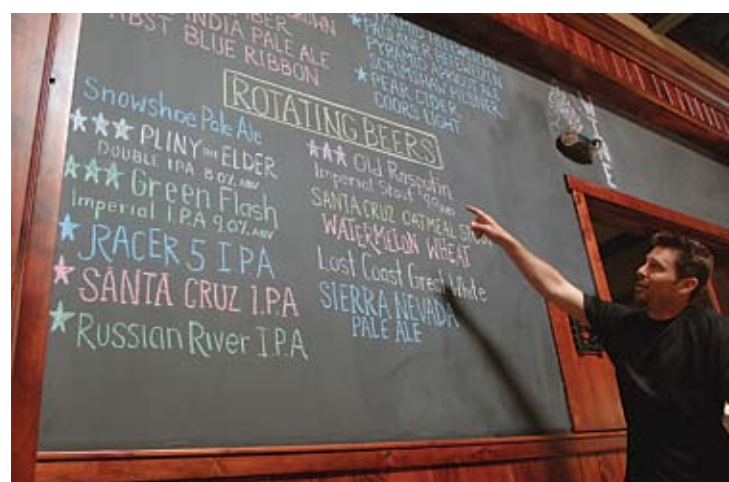 INDIA PALE ALE
PABST BLUE RIBBON
PYRAMID APRICOT ALE
SCRIMSHAW PILSNER
★ PEAR CIDER
COORS LIGHT
ROTATING BEERS
Snowshoe Pale Ale
★★★ PLINY THE ELDER
DOUBLE IPA 8.0% ABV
★★★ Green Flash
Imperial I.PA 9.0% ABV
★ RACER 5 IPA
★ SANTA CRUZ I.PA
★ Russian River I.P.A
★★★ Old Rasputin
Imperial Stout
SANTA CRUZ OATMEAL
WATERMELON WHEAT
Lost Coast Great White
SIERRA NEVADA
PALE ALE